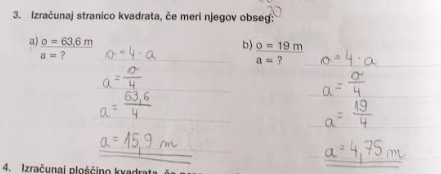 20
3. Izračunaj stranico kvadrata, če meri njegov obseg:
a) o = 63,6 m
a = ?
o = 4 · a
a = o/4
a = 63,6/4
a = 15,9 m
b) o = 19 m
a = ?
o = 4 · a
a = o/4
a = 19/4
a = 4,75 m
4. Izračunaj ploščino kvadrata, če